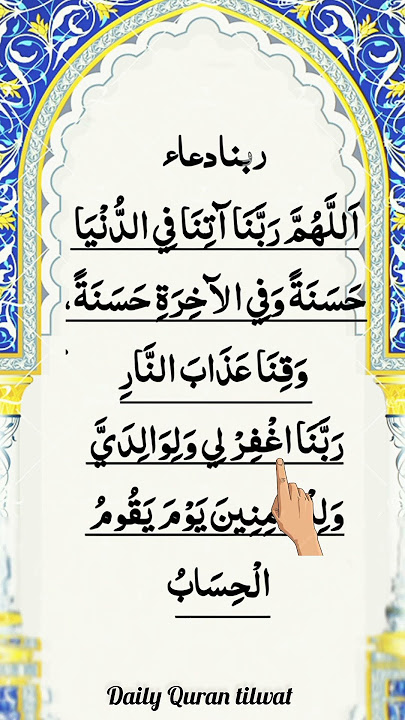 ربنا دعاء
اَللَّهُمَّ رَبَّنَا آتِنَا فِي الدُّنْيَا
حَسَنَةً وَفِي الآخِرَةِ حَسَنَةً،
وَقِنَا عَذَابَ النَّارِ
رَبَّنَا اغْفِرْ لِي وَلِوَالِدَيَّ
يَوْمَ يَقُومُ
الْحِسَابُ
Daily Quran tilwat